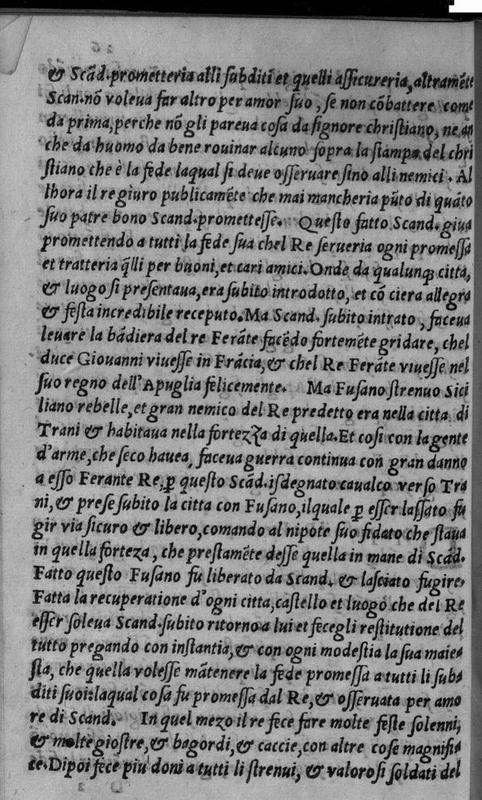 & Scãd.prometteria alli subditi et quelli assicureria, altramẽte
Scan.nõ voleua far altro per amor suo, se non cõbattere come
da prima, perche nõ gli pareua cosa da signore christiano, ne an
che da huomo da bene rouinar alcuno sopra la stampa del chri
stiano che è la fede laqual si deue osseruare sino alli nemici. Al
lhora il re giuro publicamẽte che mai mancheria pũto di quãto
suo patre bono Scand.promettesse. Questo fatto Scand.giua
promettendo a tutti la fede sua chel Re serueria ogni promessa
et tratteria q̃lli per buoni, et cari amici. Onde da qualunq; citta,
& luogo si presentaua, era subito introdotto, et cõ ciera allegra
& festa incredibile receputo. Ma Scand. subito intrato, faceua
leuare la bãdiera del re Ferãte facẽdo fortemẽte gridare, chel
duce Giouanni viuesse in Frãcia, & chel Re Ferãte viuesse nel
suo regno dell'Apuglia felicemente. Ma Fusano strenuo Sici
liano rebelle, et gran nemico del Re predetto era nella citta di
Trani & habitaua nella fortezza di quella. Et cosi con la gente
d'arme, che seco hauea, faceua guerra continua con gran danno
a esso Ferante Re, ꝑ questo Scãd. isdegnato caualco verso Tra
ni, & prese subito la citta con Fusano, ilquale ꝑ esser lassato fu
gir via sicuro & libero, comando al nipote suo fidato che staua
in quella forteza, che prestamẽte desse quella in mane di Scãd.
Fatto questo Fusano fu liberato da Scand. & lasciato fugire.
Fatta la recuperatione d'ogni citta, castello et luogo che del Re
esser soleua Scand.subito ritorno a lui et fecegli restitutione del
tutto pregando con instantia, & con ogni modestia la sua maie-
sta, che quella volesse mãtenere la fede promessa a tutti li sub-
diti suoi: laqual cosa fu promessa dal Re, & osseruata per amo
re di Scand. In quel mezo il re fece fare molte feste solenni,
& molte giostre, & bagordi, & caccie, con altre cose magnifi-
ce. Dipoi fece piu doni a tutti li strenui, & valorosi soldati del